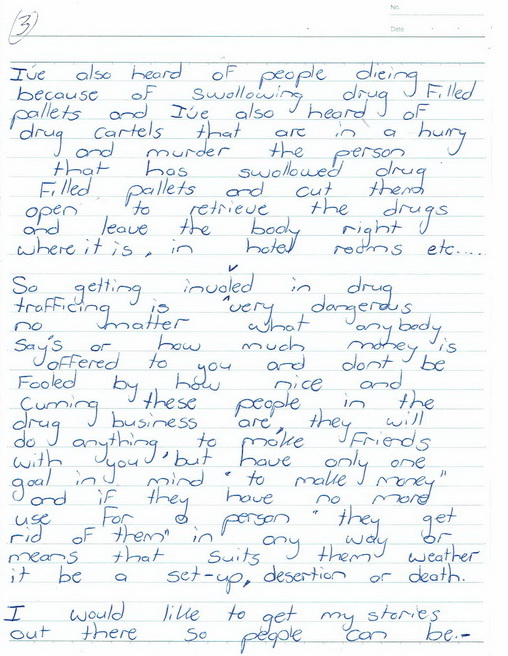 3
No.
Date
I've also heard of people dieing
because of swollowing drug filled
pallets and I've also heard of
drug cartels that are in a hurry
and murder the person
that has swollowed drug
filled pallets and cut them
open to retrieve the drugs
and leave the body right
where it is, in hotel rooms etc.....
So getting involed in drug
v
trafficing is very dangerous
no matter what anybody
Say's or how much money is
offered to you and dont be
fooled by how nice and
cuming these people in the
drug business are, they will
do anything to make friends
with you, but have only one
goal in mind "to make money"
and if they have no more
use for a person "they get
rid of them" in any way or
means that suits them weather
it be a set-up, desertion or death.
I would like to get my stories
out there so people can be.-